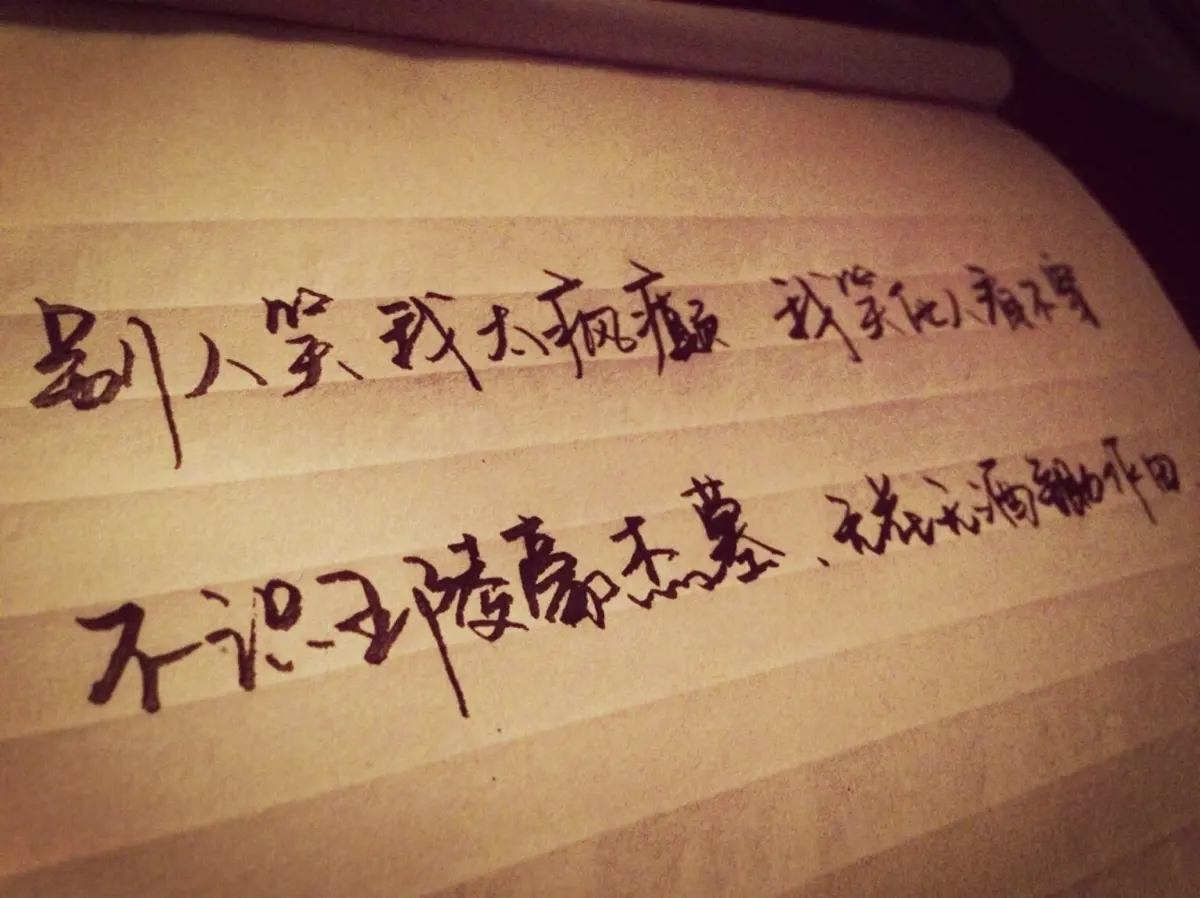 别人笑我太疯癫 我笑他人不穿
不识五陵豪杰墓、无花无酒锄作田